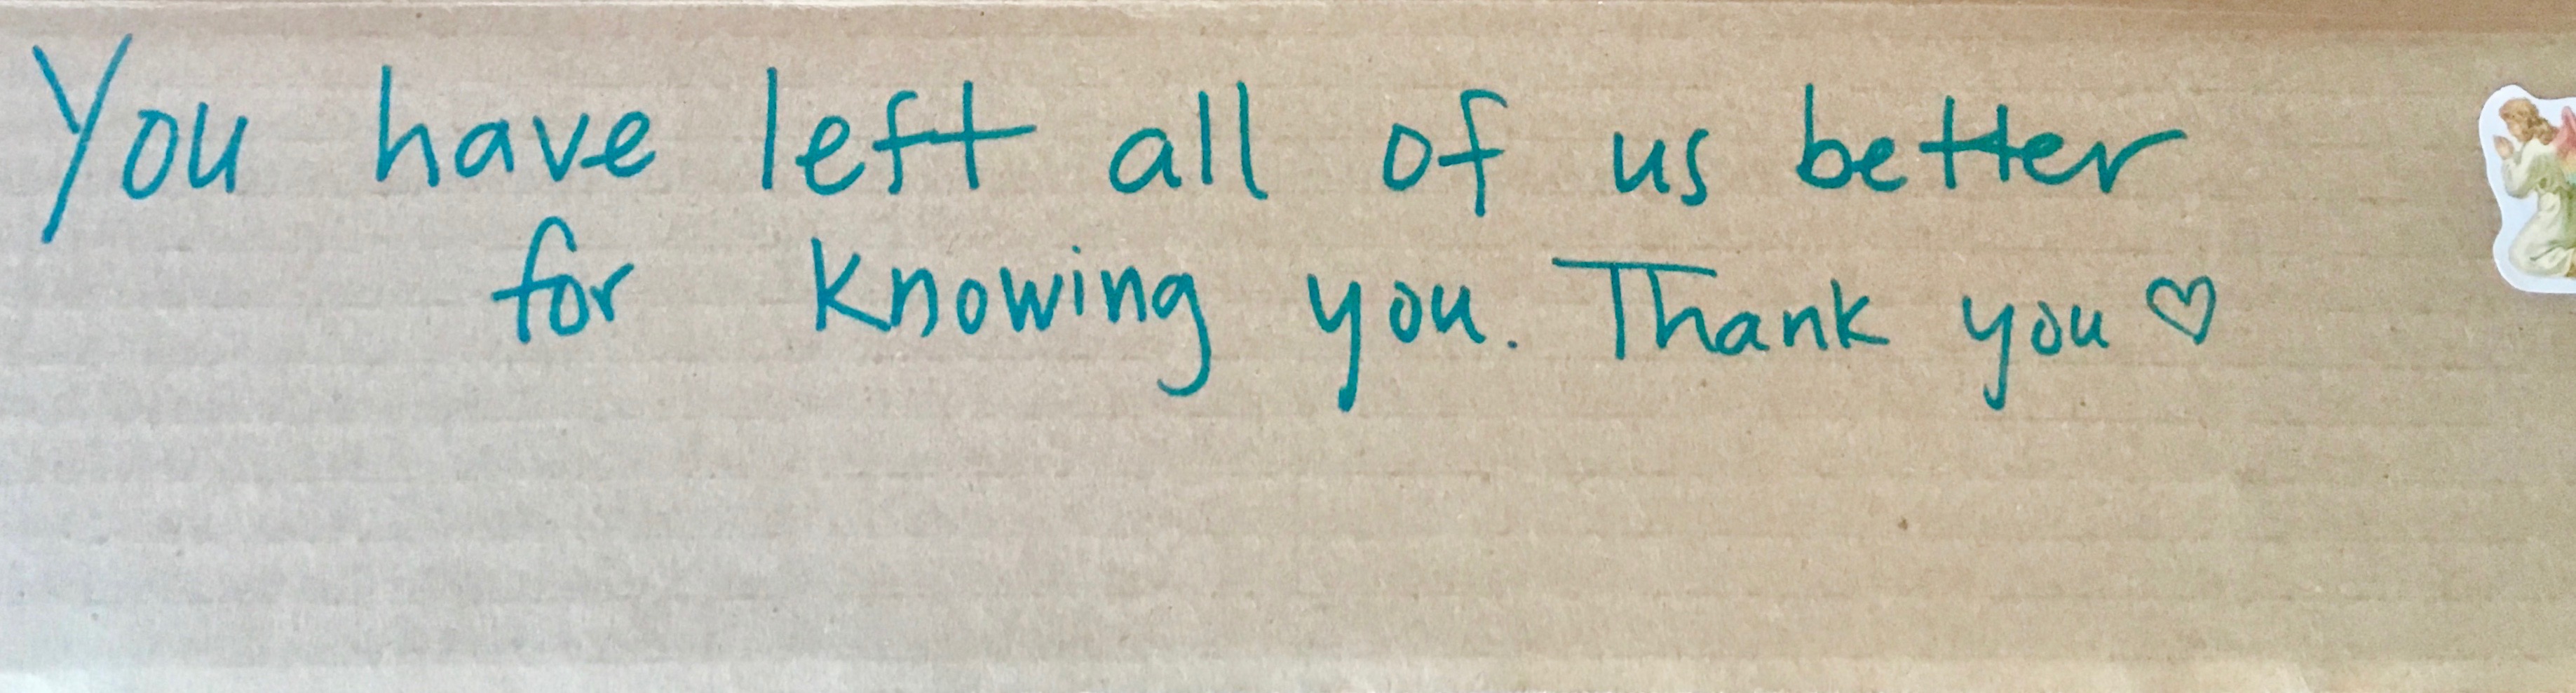 You have left all of us better
for knowing you. Thank you ♡